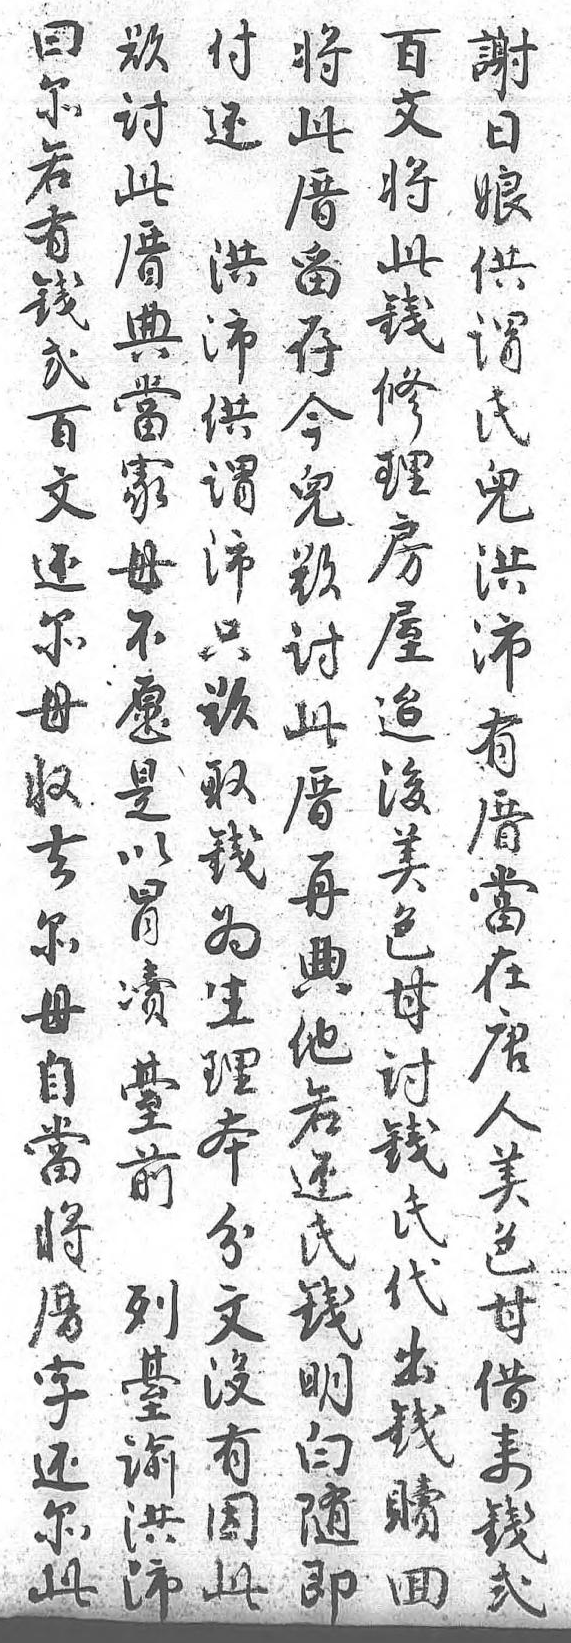 謝曰娘供謂氏兒洪沛有厝當在唐人美色甘借来錢弍
百文将此錢修理房屋迨後美色甘討錢氏代出錢贖囬
将此厝畱存今兒欵討此厝再典他若还氏錢明白随即
付还 洪沛供謂沛只欵取錢为生理本分文没有因此
欵討此厝典當家母不愿是以冒凟臺前 列臺諭洪沛
曰尔若有錢弍百文还尔母收去尔母自當将厝字还尔此